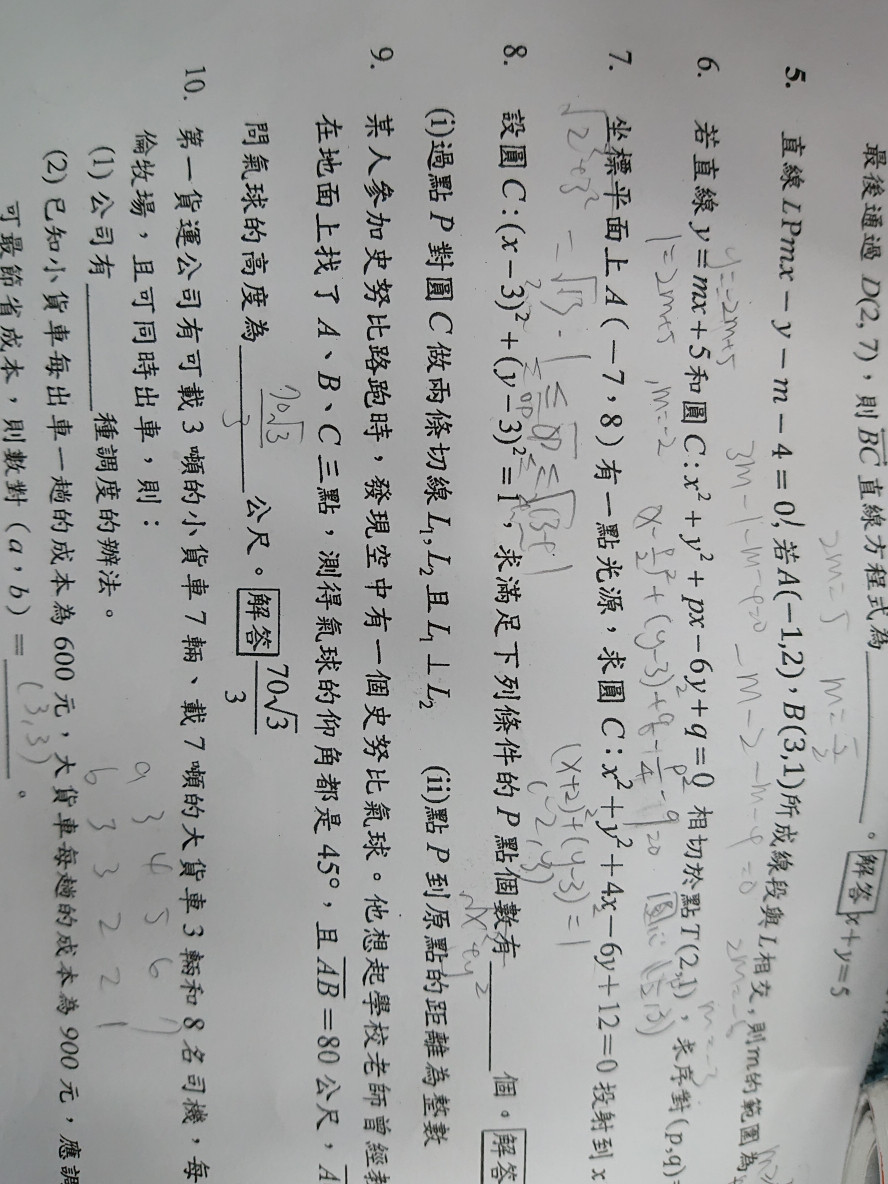 最後通過 D(2, 7)，則 BC 直線方程式為________。解答 x+y=5
2m=5 m=5/2
5. 直線 LPmx－y－m－4=0，若A(－1,2)，B(3,1)所成線段與L相交，則m的範圍為
3m-1-m-4=0 -m-2-m-4=0
y=-2m+5
6. 若直線 y=mx+5和圓 C:x²+y²+px－6y+q=0 相切於點T(2,1)，求序對(p,q)=
1=2m+5, m=-2
7. 坐標平面上 A（－7，8）有一點光源，求圓 C：x²+y²+4x－6y+12=0 投射到x
(x+2)²+(y-3)=1
(-2,3)
√2²+3² = √13 -1 ≤ OP ≤ √13+1
8. 設圓 C:(x－3)²+(y－3)²=1，求滿足下列條件的 P 點個數有________個。解答
(i)過點 P 對圓 C 做兩條切線 L₁,L₂ 且 L₁⊥L₂ (ii)點 P 到原點的距離為整數
9. 某人參加史努比路跑時，發現空中有一個史努比氣球。他想起學校老師曾經教
在地面上找了 A、B、C 三點，測得氣球的仰角都是 45°，且 AB=80 公尺，A
問氣球的高度為 70√3/3 公尺。解答 70√3/3
10. 第一貨運公司有可載 3 噸的小貨車 7 輛、載 7 噸的大貨車 3 輛和 8 名司機，每
倫牧場，且可同時出車，則：
(1) 公司有________種調度的辦法。
(2) 已知小貨車每出車一趟的成本為 600 元，大貨車每趟的成本為 900 元，應調
可最節省成本，則數對（a，b）=(3,3)。